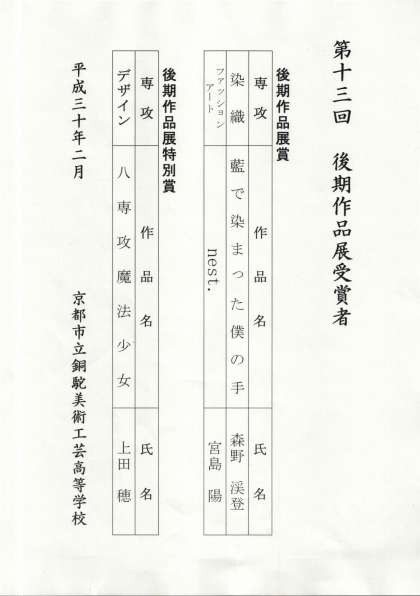 第十三回　後期作品展受賞者
後期作品展賞
専攻　作品名　氏名
染織　藍で染まった僕の手　森野　渓登
ファッションアート　nest.　宮島　陽
後期作品展特別賞
専攻　作品名　氏名
デザイン　八専攻魔法少女　上田　穂
平成三十年二月　京都市立銅駝美術工芸高等学校